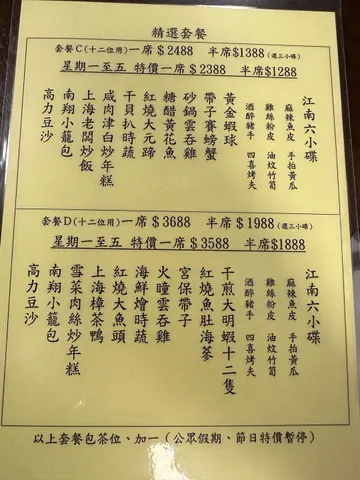 精選套餐
套餐C(十二位用)一席$2488 半席$1388(選三小碟)
星期一至五 特價一席$2388 半席$1288
江南六小碟
麻辣魚皮 手拍黃瓜
雞絲粉皮 油炆竹筍
酒醉豬手 四喜烤夫
黃金蝦球
帶子賽螃蟹
砂鍋雲吞雞
糖醋黃花魚
紅燒大元蹄
干貝扒時蔬
咸肉津白炒年糕
上海老闆炒飯
南翔小籠包
高力豆沙
套餐D(十二位用)一席$3688 半席$1988(選三小碟)
星期一至五 特價一席$3588 半席$1888
江南六小碟
麻辣魚皮 手拍黃瓜
雞絲粉皮 油炆竹筍
酒醉豬手 四喜烤夫
干煎大明蝦十二隻
紅燒魚肚海參
宮保帶子
火瞳雲吞雞
海鮮燴時蔬
紅燒大魚頭
上海樟茶鴨
雪菜肉絲炒年糕
南翔小籠包
高力豆沙
以上套餐包茶位、加一(公眾假期、節日特價暫停)